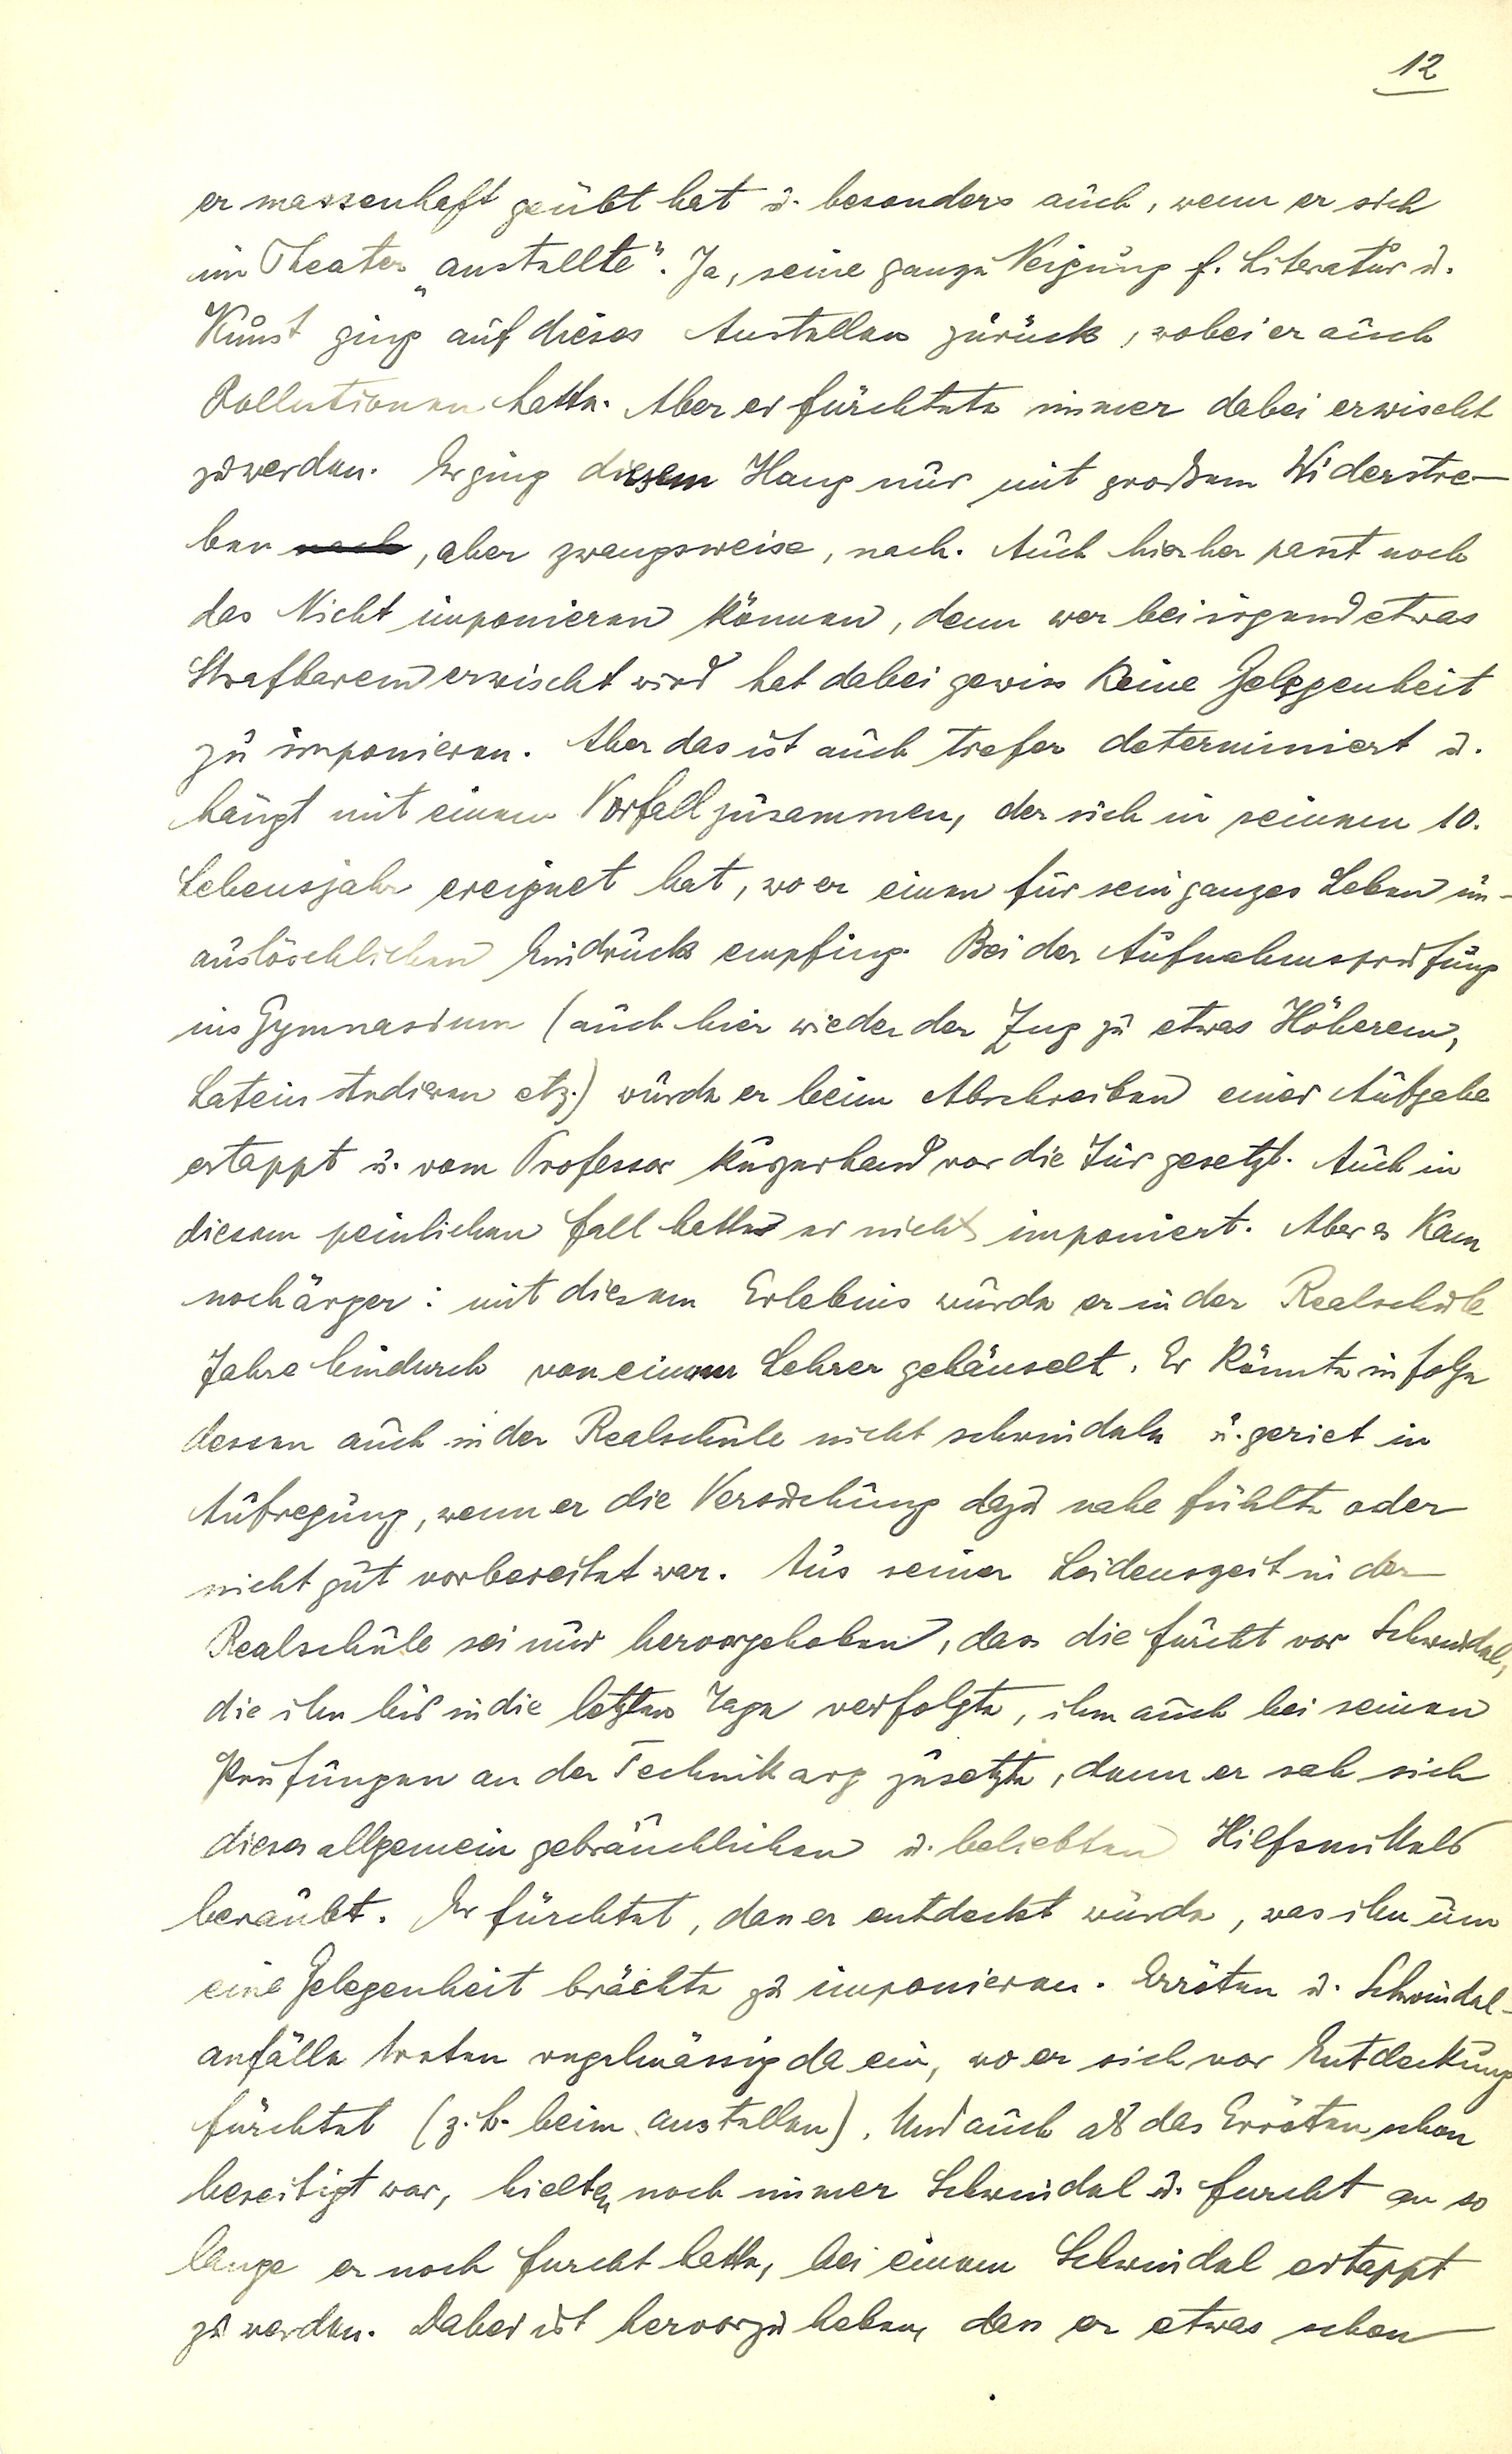 12
er massenhaft geübt hat u. besonders auch, wenn er sich
im Theater „anstellte". Ja, seine ganze Neigung f. Literatur u.
Kunst ging auf dieses Anstellen zurück, wobei er auch
Pollutionen hatte. Aber er fürchtete immer dabei erwischt
zu werden. Er ging diesem Hang nur mit großem Widerstre-
ben nach, aber zwangsweise, nach. Auch hierher passt noch
das Nicht imponieren können, denn wer bei irgend etwas
Strafbarem erwischt wird hat dabei gewiss keine Gelegenheit
zu imponieren. Aber das ist auch tiefer determiniert u.
hängt mit einem Vorfall zusammen, der sich in seinem 10.
Lebensjahr ereignet hat, wo er einen für sein ganzes Leben un-
auslöschlichen Eindruck empfing. Bei der Aufnahmsprüfung
ins Gymnasium (auch hier wieder der Zug zu etwas Höherem,
Latein studieren etz.) wurde er beim Abschreiben einer Aufgabe
ertappt u. vom Professor kurzerhand vor die Tür gesetzt. Auch in
diesem peinlichen Fall hatte er nicht imponiert. Aber es kam
noch ärger: mit diesem Erlebnis wurde er in der Realschule
Jahre hindurch von einem Lehrer gehänselt. Er konnte in folge
dessen auch in der Realschule nicht schwindeln u. geriet in
Aufregung, wenn er die Versuchung dazu nahe fühlte oder
nicht gut vorbereitet war. Aus seiner Leidenszeit in der
Realschule sei nur hervorgehoben, dass die Furcht vor Schwindel,
die ihn bis in die letzten Tage verfolgte, ihm auch bei seinen
Prüfungen an der Technik arg zusetzte, denn er sah sich
dieses allgemein gebräuchlichen u. beliebten Hilfsmittels
beraubt. Er fürchtet, dass er entdeckt würde, was ihn um
eine Gelegenheit brächte zu imponieren. Erröten u. Schwindel-
anfälle traten regelmässig da ein, wo er sich vor Entdeckung
fürchtet (z. b. beim anstellen). Und auch als das Erröten schon
beseitigt war, hielten noch immer Schwindel u. Furcht an so
lange er noch Furcht hatte, bei einem Schwindel ertappt
zu werden. Dabei ist hervorzuheben, dass er etwas schon